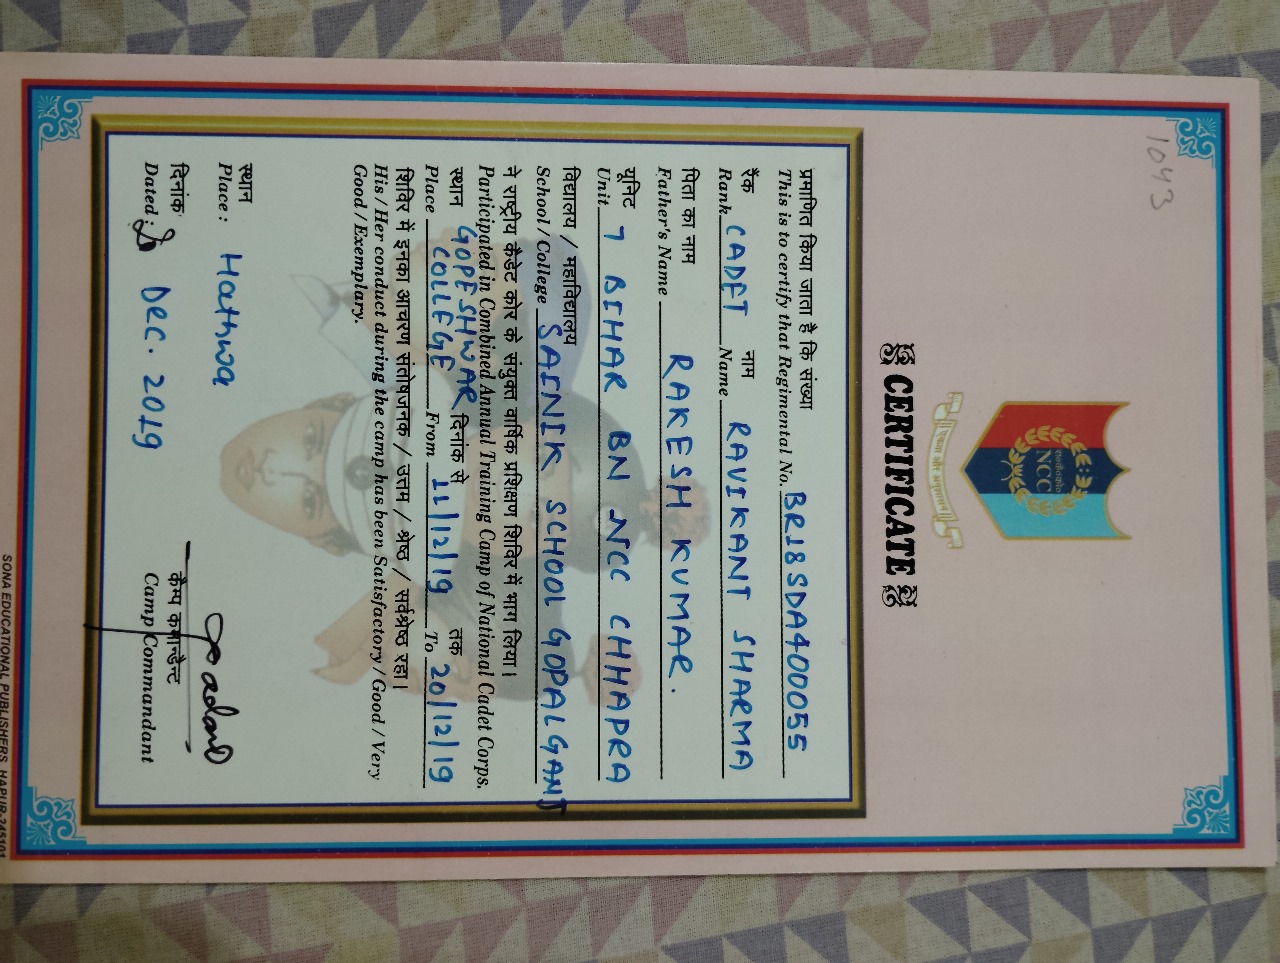 1043
NCC
एकता और अनुशासन
CERTIFICATE
प्रमाणित किया जाता है कि संख्या
This is to certify that Regimental No. BR18SDA4000055
रैंक नाम
Rank CADET Name RAVIKANT SHARMA
पिता का नाम
Father's Name RAKESH KUMAR.
यूनिट
Unit 7 BIHAR BN NCC CHHAPRA
विद्यालय / महाविद्यालय
School / College SAINIK SCHOOL GOPALGANJ
ने राष्ट्रीय कैडेट कोर के संयुक्त वार्षिक प्रशिक्षण शिविर में भाग लिया।
Participated in Combined Annual Training Camp of National Cadet Corps.
स्थान GOPESHWAR दिनांक से तक
Place COLLEGE From 11/12/19 To 20/12/19
शिविर में इनका आचरण संतोषजनक / उत्तम / श्रेष्ठ / सर्वश्रेष्ठ रहा।
His / Her conduct during the camp has been Satisfactory / Good / Very
Good / Exemplary.
स्थान
Place : Hathwa
दिनांक कैम्प कमान्डैन्ट
Dated : 20 Dec. 2019 Camp Commandant
SONA EDUCATIONAL PUBLISHERS, HAPUR-245101